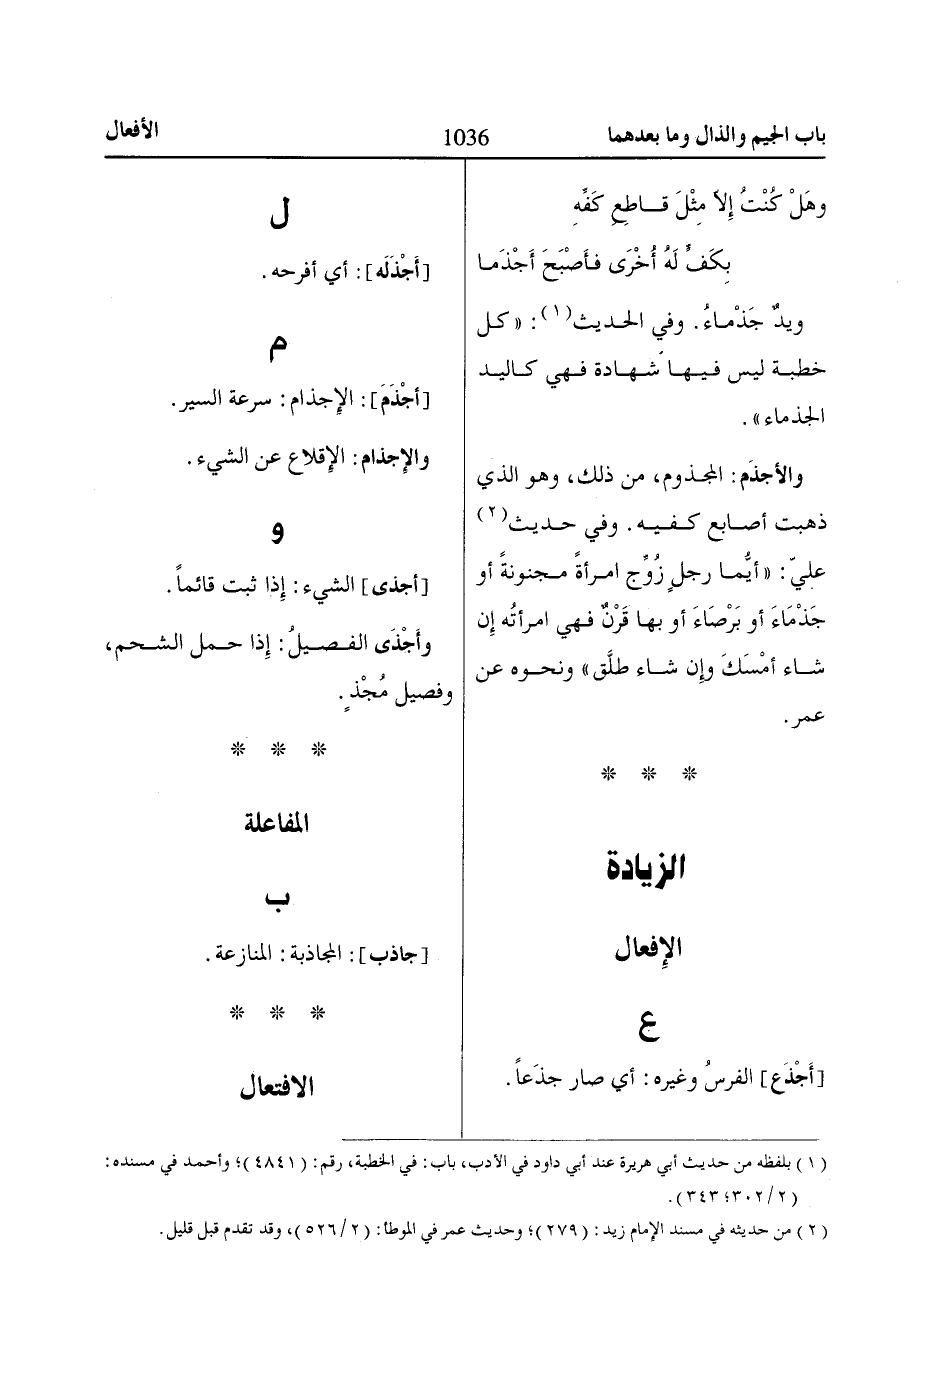 باب الجيم والذال وما بعدهما
1036
الأفعال
وهَلْ كُنْتُ إِلاّ مِثْلَ قـاطِعِ كَفِّهِ
بِكَفٍّ لَهُ أُخْرَى فأصْبَحَ أَجْذَمـا
ويدٌ جَذْمـاءُ. وفي الحديث(١): «كـل
خطبـة ليس فـيـهـا شـهـادة فـهي كـاليـد
الجذماء».
والأجذَم: المجـذوم، من ذلك، وهو الذي
ذهبت أصـابع كـفـيـه. وفي حـديث(٢)
عليّ: «أيُّما رجلٍ زُوِّج امـرأةً مـجنونةً أو
جَذْمَاءَ أو بَرْصَاءَ أو بها قَرْنٌ فـهي امرأتُه إن
شـاء أمْسَكَ وإن شـاء طلَّق» ونحـوه عن
عمر.
* * *
الزيادة
الإفعال
ع
[أَجْذَع] الفرسُ وغيره: أي صار جذَعاً.
ل
[أَجْذَلَه]: أي أفرحه.
م
[أجْذَمَ]: الإجذام: سرعة السير.
والإجذام: الإقلاع عن الشيء.
و
[أجذى] الشيء: إذا ثبت قائماً.
وأجْذَى الفـصـيلُ: إذا حـمل الشـحم،
وفصيل مُجْذٍ.
* * *
المفاعلة
ب
[جاذب]: المجاذبة: المنازعة.
* * *
الافتعال
(١) بلفظه من حديث أبي هريرة عند أبي داود في الأدب، باب: في الخطبة، رقم: (٤٨٤١)؛ وأحمد في مسنده:
(٢/٣٠٢؛ ٣٤٣).
(٢) من حديثه في مسند الإمام زيد: (٢٧٩)؛ وحديث عمر في الموطأ: (٢/٥٢٦)، وقد تقدم قبل قليل.